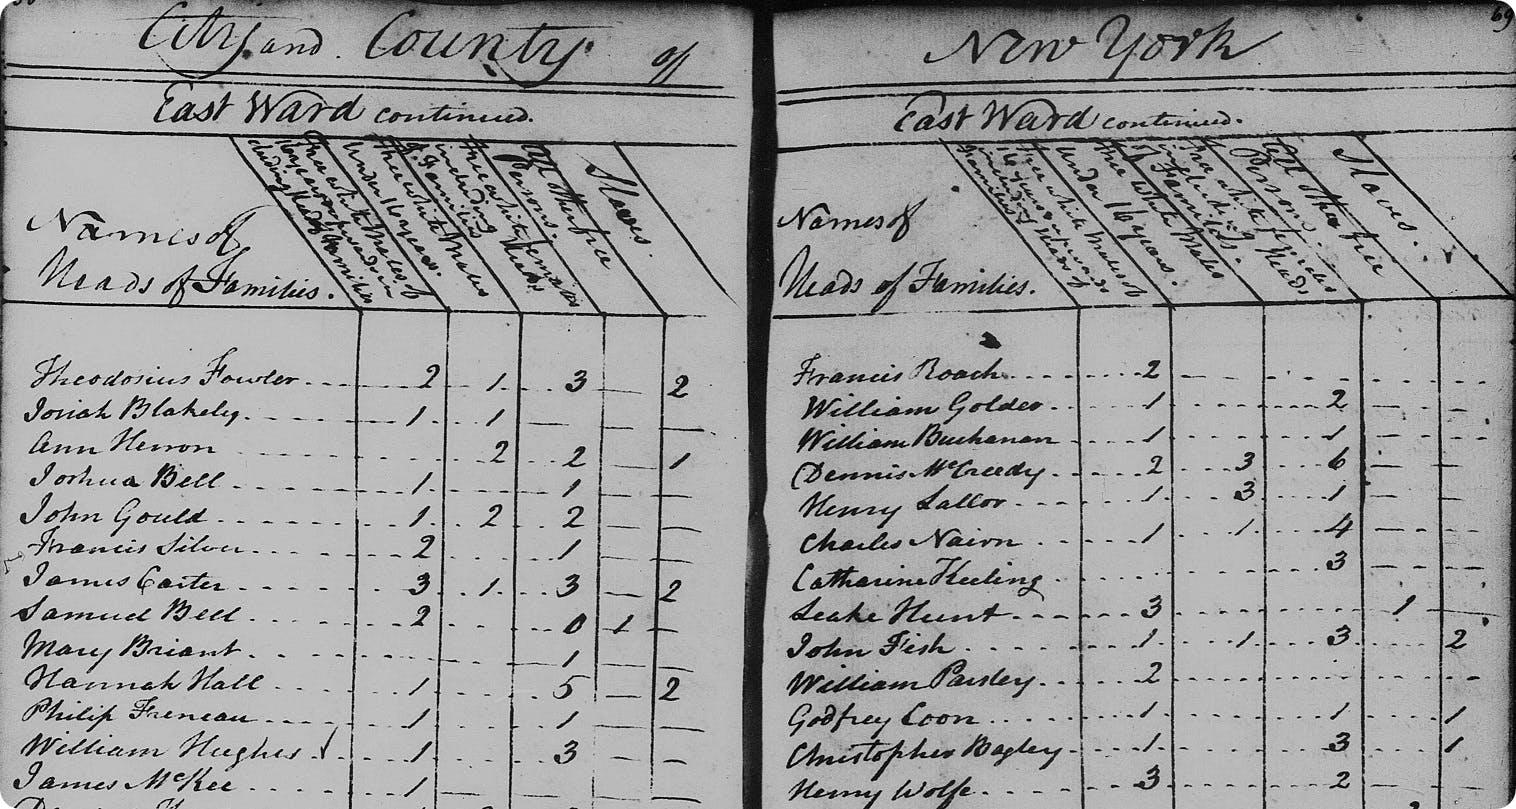 City and County of
East Ward continued.
Names of
Heads of Families.
free white Males of
16 years & upwards in
cluding Heads of Families
free white Males
under 16 years.
free white females
including Heads
of Families
All other free
Persons.
Slaves.
Theodosius Fowler 2 1 3 — 2
Josiah Blakely 1 1 — — —
Ann Herron 2 2 — 1
Joshua Bell 1 1 — —
John Gould 1 2 2 — —
Francis Silver 2 1 — —
James Carter 3 1 3 — 2
Samuel Bell 2 0 1 —
Mary Briant 1 — —
Hannah Hall 1 5 — 2
Philip Freneau 1 1 — —
William Hughes 1 3 — —
James McKee 1 — — — —
69
New York
East Ward continued.
Names of
Heads of Families.
free white Males
under 16 years.
free white females
including Heads
of Families.
All other free
Persons.
Slaves.
Francis Roach 2
William Golder 1 2 — —
William Buchanan 1 1 —
Dennis McCreedy 2 3 6 — —
Henry Lallor 1 3 1 — —
Charles Nairn 1 1 4 — —
Catharine Keeling 3
Leake Hunt 3 1 —
John Fish 1 1 3 2
William Parsley 2
Godfrey Coon 1 1 1
Christopher Bagley 1 3 1
Henry Wolfe 3 2